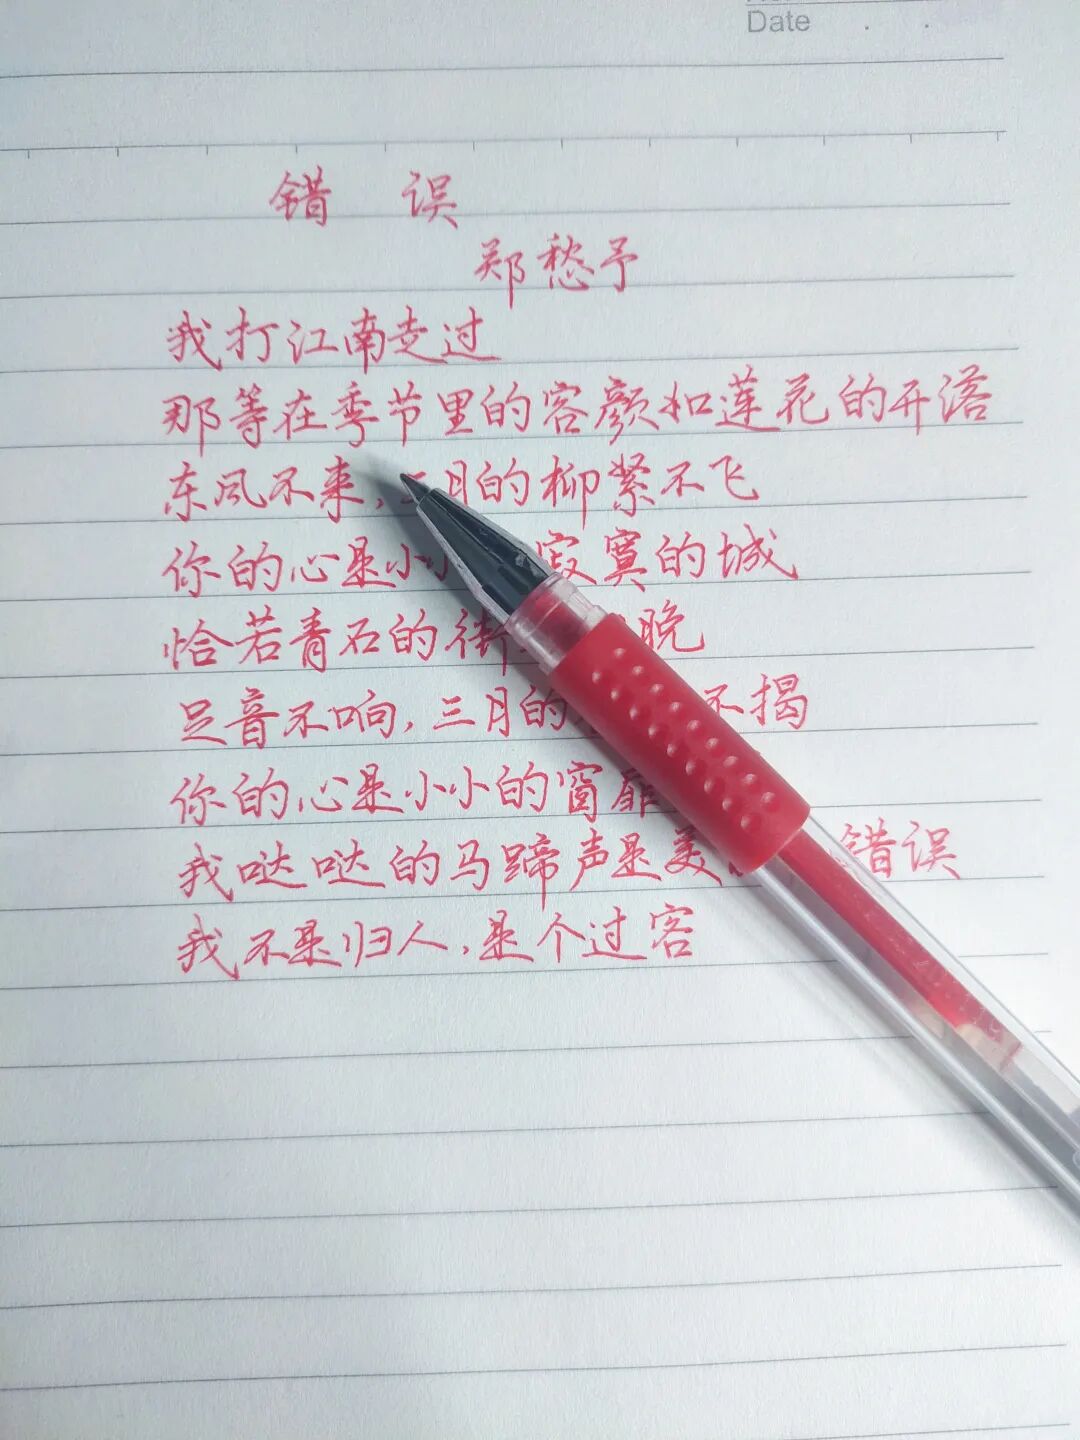 Date . .
错 误
郑愁予
我打江南走过
那等在季节里的容颜和莲花的开落
东风不来,三月的柳絮不飞
你的心是小小 寂寞的城
恰若青石的街 晚
足音不响,三月的 不揭
你的心是小小的窗扉
我哒哒的马蹄声是美 错误
我不是归人,是个过客